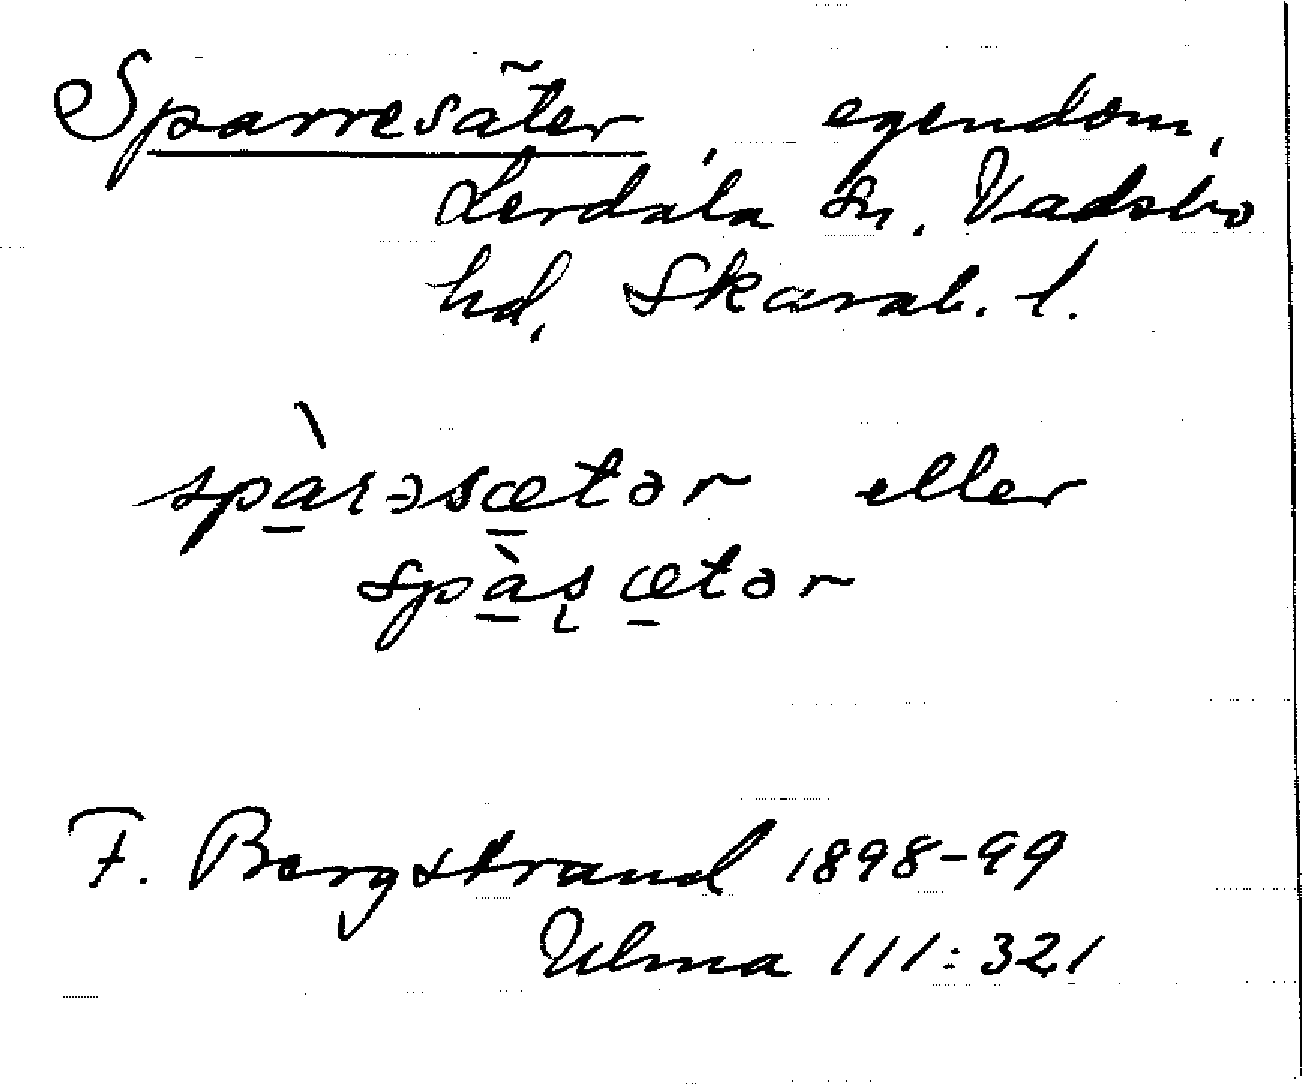 Sparresäter, egendom,
Lerdala sn. Vadsbo
hd, Skarab. l.
spà̱rəsæ̱tər eller
spà̱ʂæ̱tər
F. Bergstrand 1898-99
Ulma 111:321